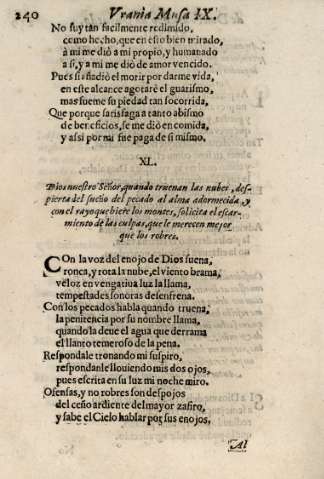 240 Vrania Musa IX.
No fuy tan facilmente redimido,
como hecho, que en eſſo bien mirado,
à mi me diò a mi propio, y humanado
a ſi, y a mi me diò de amor vencido.
Pues ſi añadiò el morir por darme vida,
en eſte alcance agotarè el guariſmo,
mas fueme ſu piedad tan ſocorrida,
Que porque ſatisfaga a tanto abiſmo
de beneficios, ſe me diò en comida,
y aſsi por mi fue paga de ſi miſmo.
XL.
Dios nueſtro Señor, quando truenan las nubes, deſ-
pierta del ſueño del pecado al alma adormecida, y
con el rayo que hiere los montes, ſolicita el eſcar-
miento de las culpas, que le merecen mejor
que los robres.
COn la voz del enojo de Dios ſuena,
ronca, y rota la nube, el viento brama,
veloz en vengatiua luz la llama,
tempeſtades ſonoras deſenfrena.
Con los pecados habla quando truena,
la penitencia por ſu nombre llama,
quando la deue el agua que derrama
el llanto temeroſo de la pena.
Reſpondale tronando mi ſuſpiro,
reſpondanle llouiendo mis dos ojos,
pues eſcrita en ſu luz mi noche miro.
Ofenſas, y no robres ſon deſpojos
del ceño ardiente del mayor zafiro,
y ſabe el Cielo hablar por ſus enojos,
Al